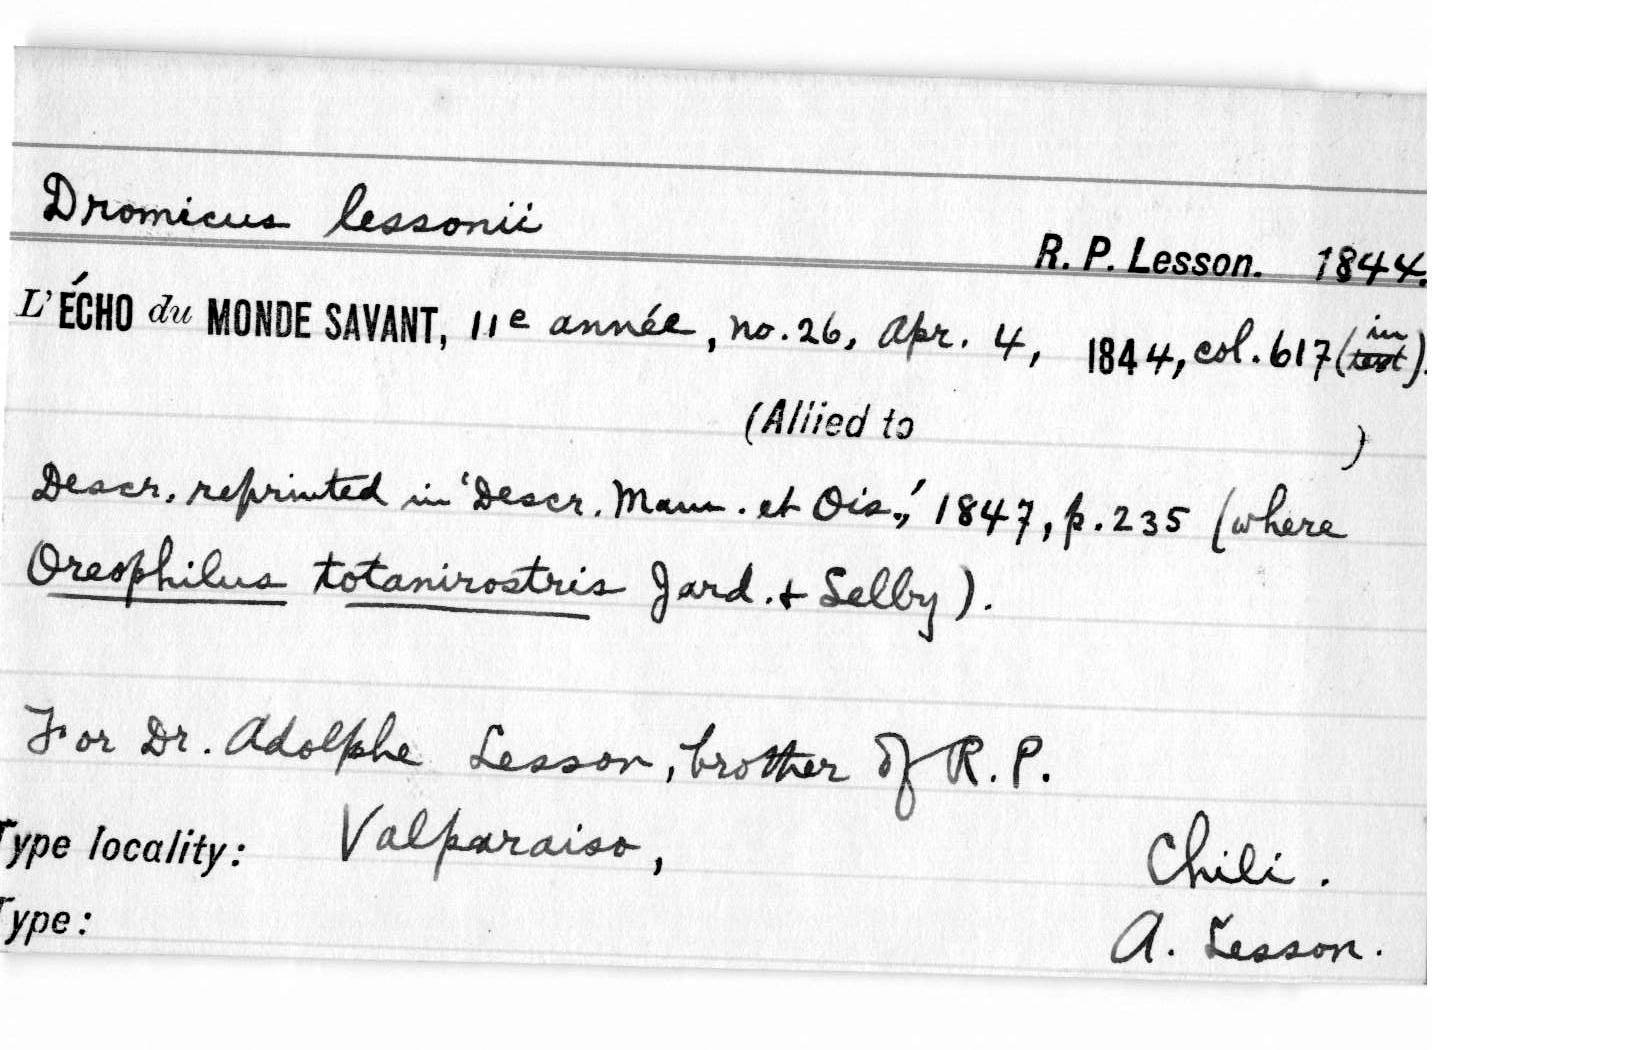 Dromicus lessonii
R. P. Lesson. 1844.
L'ÉCHO du MONDE SAVANT, 11e année, no. 26, Apr. 4, 1844, col. 617 (in text).
(Allied to )
Descr. reprinted in 'Descr. Mam. et Ois.,' 1847, p. 235 (where
Oreophilus totanirostris Jard. + Selby).
For Dr. Adolphe Lesson, brother of R. P.
Type locality: Valparaiso, Chili.
Type: A. Lesson.